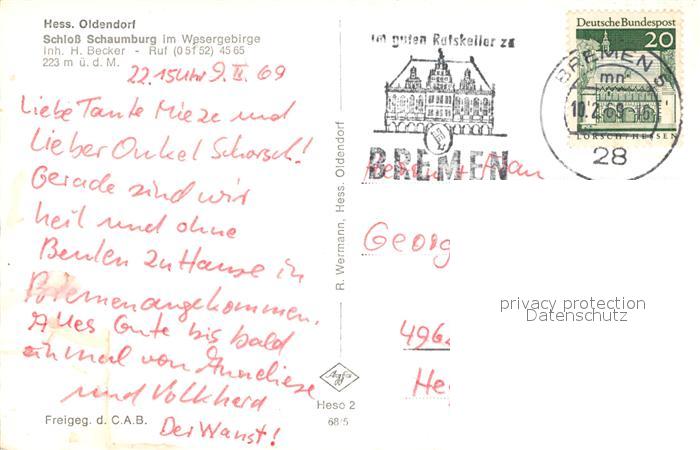 Hess. Oldendorf
Schloß Schaumburg im Wesergebirge
Inh. H. Becker - Ruf (0 51 52) 45 65
223 m ü. d. M.
22.15 Uhr 9. II. 69
Liebe Tante Mieze und
Lieber Onkel Schorsch!
Gerade sind wir
heil und ohne
Beulen zu Hause in
Bremen angekommen.
Alles Gute bis bald
einmal von Anneliese
und Volkhard
Der Wanst!
Freigeg. d. C.A.B.
R. Wermann, Hess. Oldendorf
Agfa
Heso 2
68/5
im guten Ratskeller zu
BREMEN
Deutsche Bundespost
20
LORSCH/HESSEN
BREMEN 5
mn
10.2.69-15
28
Herrn + Frau
Georg
496
He
privacy protection
Datenschutz